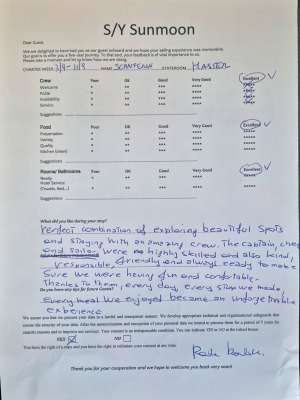 S/Y Sunmoon
Dear Guest,
We are delighted to have had you as our guest onboard and we hope your sailing experience was memorable.
Our goal is to offer you a five-star journey. To that end, your feedback is of vital importance to us.
Please take a moment and let us know how we are doing.
CHARTER WEEK NAME STATEROOM MASTER
Crew Poor OK Good Very Good Excellent
Welcome * ** *** **** *****
Polite * ** *** **** *****
Availability * ** *** **** *****
Service * ** *** **** *****
Suggestions
Food Poor OK Good Very Good Excellent
Presentation * ** *** **** *****
Variety * ** *** **** *****
Quality * ** *** **** *****
* ** *** **** *****
Suggestions
Rooms/ Bathrooms Poor OK Good Very Good Excellent
Ready * ** *** **** *****
Hotel Service
(Towels, bed...) * ** *** **** *****
Suggestions
What did you like during your stay?
Perfect combination of exploring beautiful spots
and staying with an amazing crew. The captain, chef
and sailor were highly skilled and also kind,
responsible, friendly and always ready to make
sure we were having fun and comfortable.
Thanks to them, every day, every stop we made,
Do you have any tips for future Guests?
Every meal we enjoyed became an unforgettable
experience
YES NO
Thank you for your cooperation and we hope to welcome you back very soon!